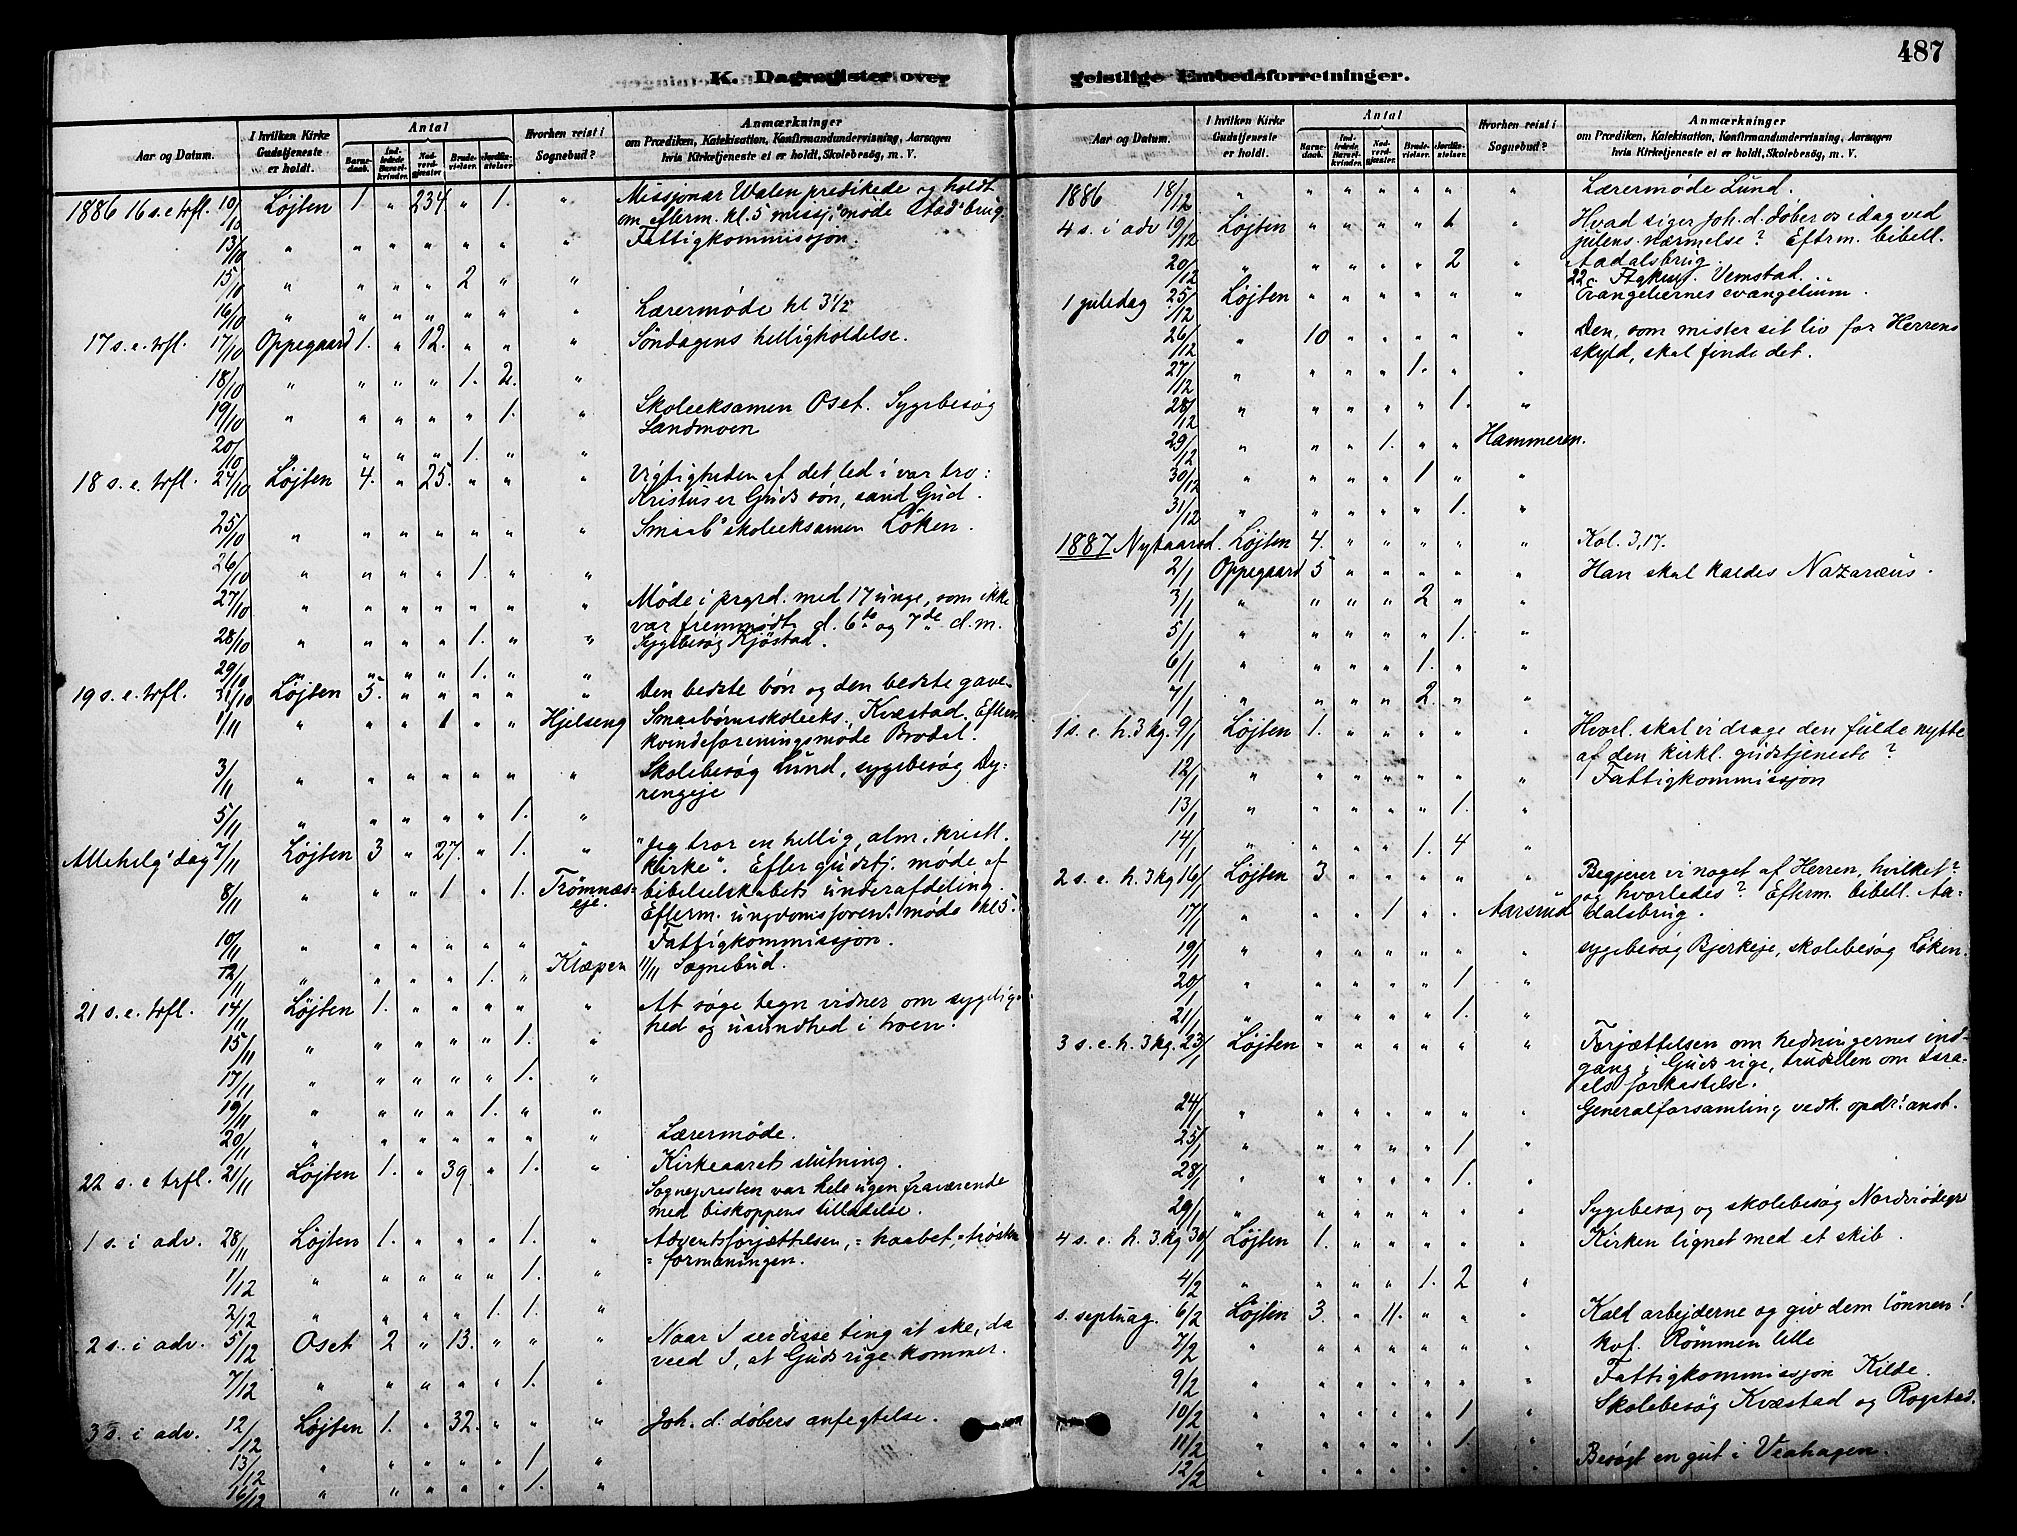 487
K. Dagregister over geistlige Embedsforretninger.
Aar og Datum. I hvilken Kirke Gudstjeneste er holdt. Antal Barnedaab. Indledede Barselkvinder. Nadverdgjæster. Brudevielser. Jordfæstelser. Hvorhen reist i Sognebud? Anmærkninger om Prædiken, Katekisation, Konfirmandundervisning, Aarsagen hvis Kirketjeneste ei er holdt, Skolebesøg, m. V.
1886 16 s. e. trfl. 10/10 Løjten 1. " 234 " 1. " Missjonær Walen predikede og holdt
om efterm. kl. 5 missj. møde Aadalsbrug.
13/10 " " " " " " " Fattigkommissjon.
15/10 " " " " 2 " "
16/10 " " " " " " " Lærermøde kl 3 1/2
17 s. e. trfl. 17/10 Oppegaard 1. " 12. " " " Søndagens helligholdelse.
18/10 " " " " 1. 2. "
19/10 " " " " " 1. " Skoleeksamen Oset. Sygebesøg
Sandmoen
20/10 " " " " 1. " "
18 s. e. trfl. 24/10 Løjten 4. " 25. " " " Vigtigheden af det led i vor tro:
Kristus er Guds søn, sand Gud.
25/10 " " " " " " " Smaab. skoleeksamen Løken.
26/10 " " " " 1. " "
27/10 " " " " " " " Møde i prgrd. med 17 unge, som ikke
var fremmødt d. 6te og 7de d. m.
28/10 " " " " 1. " " Sygebesøg Kjøstad.
29/10 " " " " 1. " "
19 s. e. trfl. 31/10 Løjten 5. " " " " " Den bedste bøn og den bedste gave.
1/11 " " " 1 " " Hjelseng Smaabørnsskoleeks. Kvæstad. Efterm
kvindeforeningsmøde Brodal.
3/11 " " " " " " " Skolebesøg Lund, sygebesøg Dy-
rengeje
5/11 " " " " " 1. "
Allehelg. dag 7/11 Løjten 3 " 27. " 1. " "Jeg tror en hellig, alm. kristl.
kirke". Efter gudstj. møde af
8/11 " " " 1 " 1. Trømnæs-eje. bibelselskabets underafdeling.
Efterm. ungdomsforen. møde kl 5.
10/11 " " " " " " " Fattigkommissjon.
12/11 " " " " 1. " Klæpen 11/11 Sognebud.
21 s. e. trfl. 14/11 Løjten 1. " " " " " At søge tegn vidner om sygelig-
hed og usundhed i troen.
15/11 " " " " " 1. "
17/11 " " " " " 1. "
19/11 " " " " 1. " "
20/11 " " " " " " " Lærermøde.
22 s. e trfl. 21/11 Løjten 1. " 39. " 1. " Kirkeaarets slutning.
Sognepresten var hele ugen fraværende
med biskoppens tilladelse.
1 s. i adv. 28/11 Løjten 1. " " " 1. " Adventsforjættelsen, = haabet, = trøsten
= formaningen.
1/12 " " " " " 1. "
2/12 " " " " 1. 1. "
2 s. i adv. 5/12 Oset 2 " 13. " " " Naar I ser disse ting at ske, da
veed I, at Guds rige kommer.
7/12 " " " " " 1. "
3 s. i adv. 12/12 Løjten 1. " 32. " " " Joh. d. døbers anfegtelse.
13/12 " " " " " 1 "
16/12 " " " " " 1. "
1886 18/12 " " " " " " " Lærermøde Lund.
4 s. i adv 19/12 Løjten " " " " 1 " Hvad siger Joh. d. døber os idag ved
julens nærmelse? Efterm. bibell.
20/12 " " " " " 2 " Aadalsbrug.
22. Vemstad.
1 juledag 25/12 Løjten " " " " " " Evangeliernes evangelium.
26/12 " 10 " " " " " Den, som mister sit liv for Herrens
skyld, skal finde det.
27/12 " " " " 1. " "
28/12 " " " " " 1. "
29/12 " " " 1. " " Hammeren.
30/12 " " " " 1 " "
31/12 " " " " " 1. "
1887 Nytaarsd. Løjten 4. " " " " " Kol. 3,17.
2/1 Oppegaard 5 " " " " " Han skal kaldes Nazaræus.
3/1 " " " " 2 " "
5/1 " " " " " 1. "
6/1 " " " " 1. " "
7/1 " " " " 2. " "
1 s. e. h. 3 kg. 9/1 Løjten 1. " " " " " Hvorl. skal vi drage den fulde nytte
af den kirkl. gudstjeneste?
12/1 " " " " " " " Fattigkommissjon
13/1 " " " " " 1. "
14/1 " " " " 1. 4 "
2 s. e. h. 3 kg 16/1 Løjten 3 " " " " " Begjerer vi noget af Herren, hvilket?
og hvorledes? Efterm. bibell. Aa-
17/1 " " " 1 " " Aarsrud dalsbrug.
19/1 " " " " " " " sygebesøg Bjerkeje, skolebesøg Løken.
20/1 " " " " " 1 "
21/1 " " " " " 1. "
3 s. e. h. 3 kg. 23/1 Løjten " " " " " " Forjættelsen om hedningernes ind-
gang i Guds rige, truselen om Isra-
els forkastelse.
24/1 " " " " " " " Generalforsamling vedk. opdr. anst.
25/1 " " " " " 1 "
28/1 " " " " " 1. "
29/1 " " " " " " " Sygebesøg og skolebesøg Nordviødegr
4 s. e. h. 3 kg 30/1 Løjten 1. " " " " " Kirken lignet med et skib.
4/2 " " " " 1. 2 "
s. septuag. 6/2 Løjten 3. " 11. " " " Kald arbejderne og giv dem lønnen!
7/2 " " " " " " " kvf. Rømmen lille
9/2 " " " " " " " Fattigkommissjon Kilde.
10/2 " " " " " 1 " Skolebesøg Kvæstad og Rogstad.
11/2 " " " " " 1. "
12/2 " " " " " " " Besøgt en gut i Veahagen.